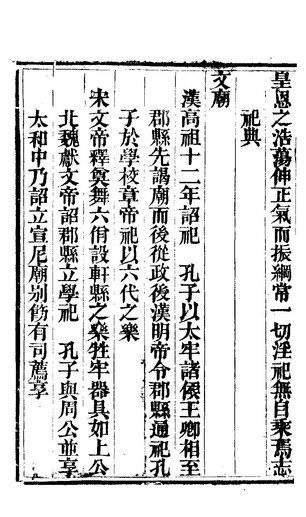 皇恩之浩蕩伸正氣而振綱常一切淫祀無自乘焉志
祀典
文廟
漢高祖十二年詔祀 孔子以太牢諸侯王卿相至
郡縣先謁廟而後從政後漢明帝令郡縣通祀孔
子於學校章帝祀以六代之樂
宋文帝釋奠舞六佾設軒縣之樂牲牢器具如上公
北魏獻文帝詔郡縣立學祀 孔子與周公並享
太和中乃詔立宣尼廟别飭有司薦享